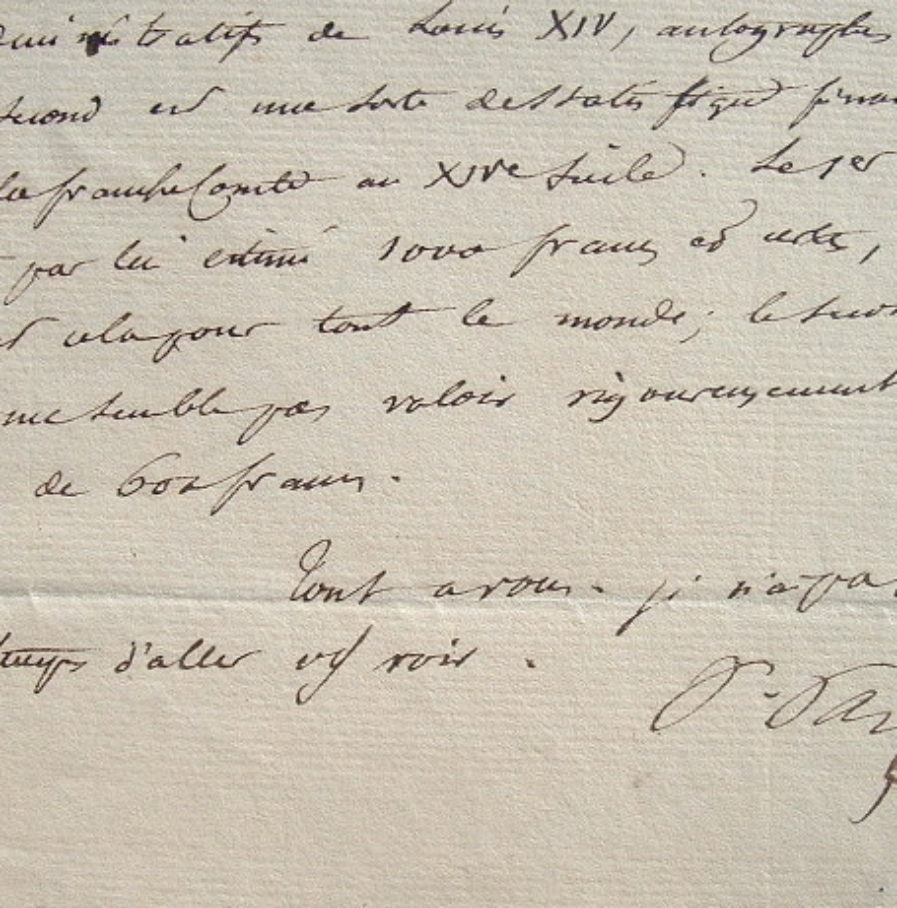 ministratifs de Louis XIV, autographes
second est une sorte de statistique finan
la franche Comté au XIVe siècle. Le 1er
par lui estimé 1000 francs et certes,
cela pour tout le monde; le secon
me semble pas valoir rigoureusement
de 600 francs.
Tout a vous. je n'ai pa
temps d'aller vs voir.